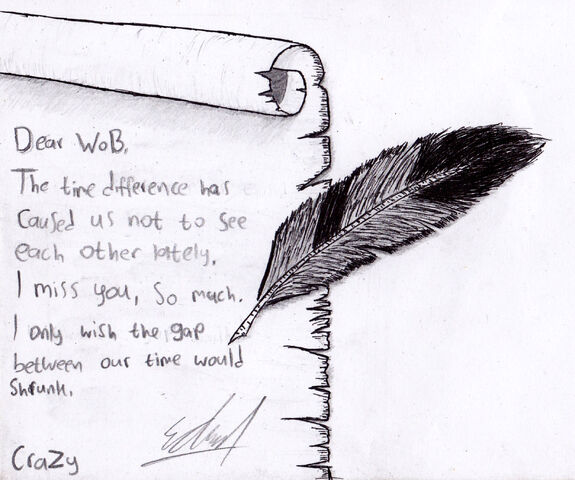 Dear WoB,
The time difference has
Caused us not to see
each other lately.
I miss you, so much.
I only wish the gap
between our time would
Shrunk.
Crazy